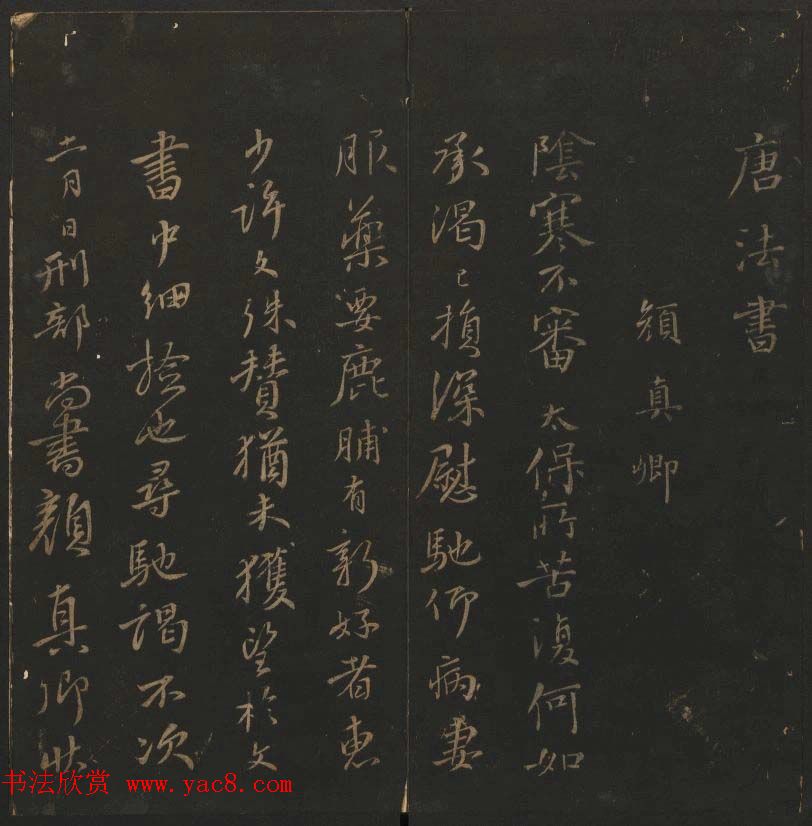 唐法書
顏真卿
陰寒不審太保所苦復何如
承渴已損深慰馳仰病妻
服藥要鹿脯有新好者惠
少許文殊贊猶未獲望於文
書中細撿也尋馳謁不次
十一月日刑部尚書顏真卿狀
书法欣赏 www.yac8.com